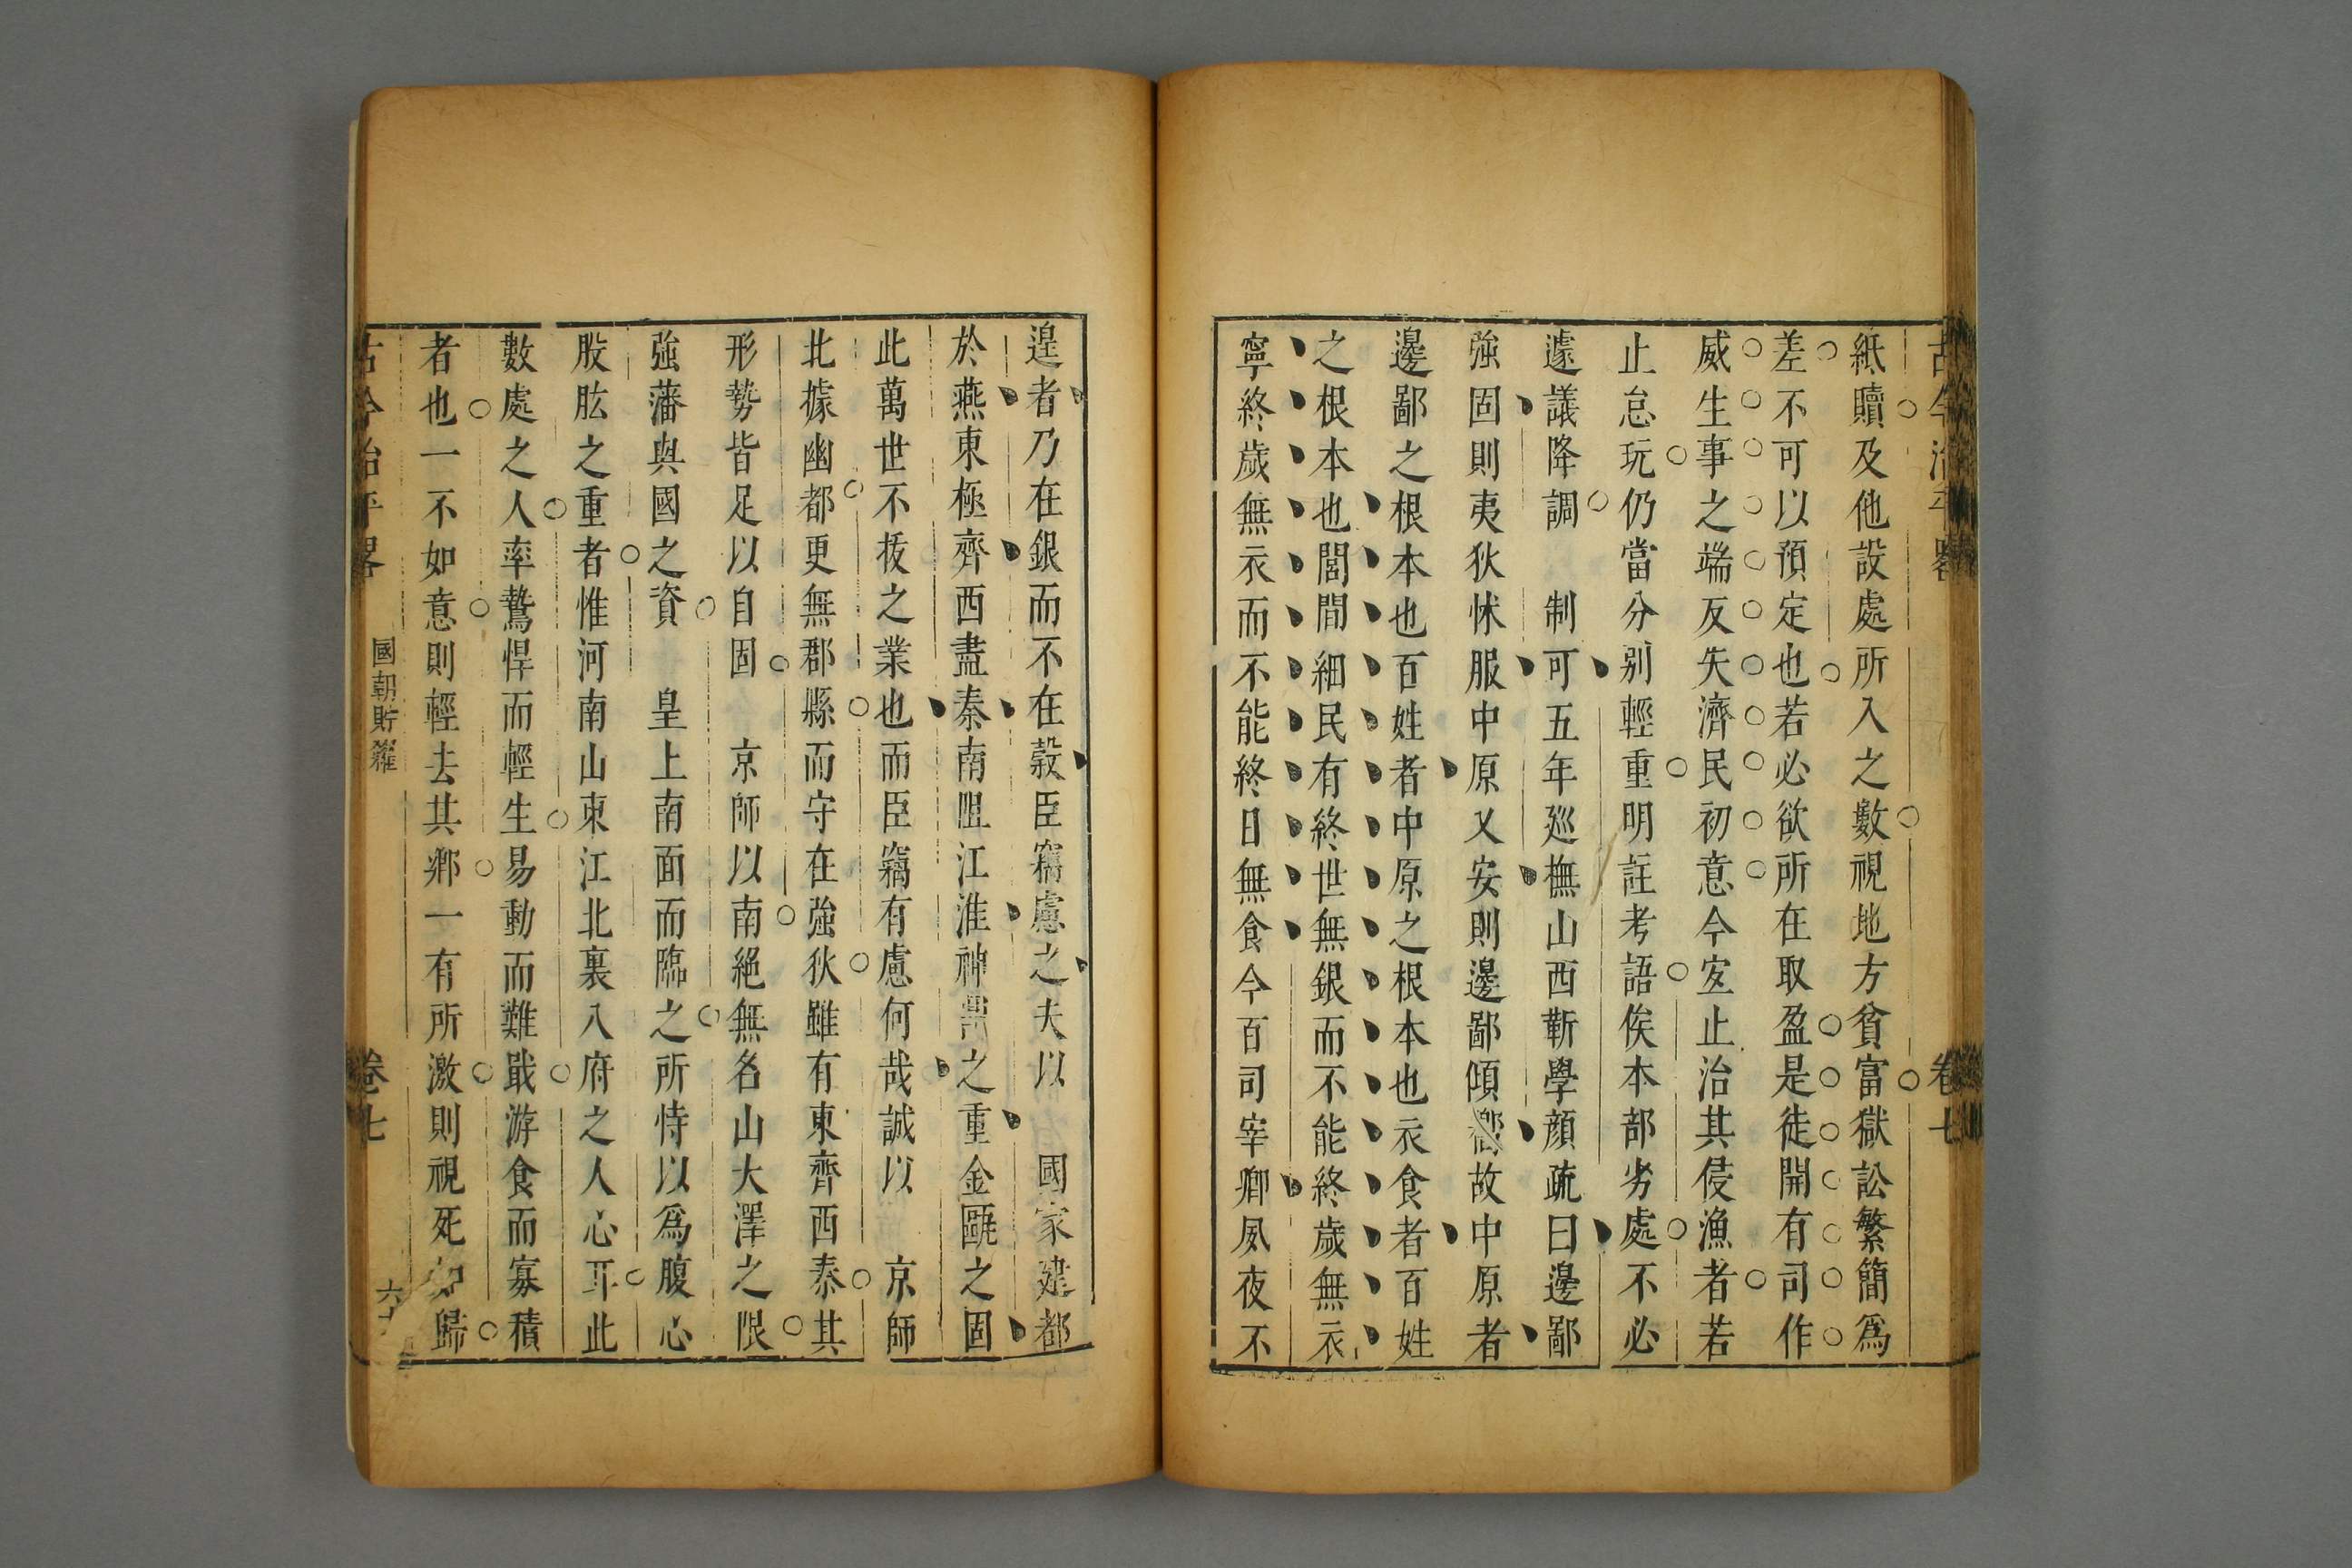 古今治平畧 卷七
紙贖及他設處所入之數視地方貧富獄訟繁簡爲
差不可以預定也若必欲所在取盈是徒開有司作
威生事之端反失濟民初意今宐止治其侵漁者若
止怠玩仍當分别輕重明註考語俟本部劣處不必
遽議降調 制可五年廵撫山西靳學顔疏曰邊鄙
強固則夷狄怵服中原乂安則邊鄙傾嚮故中原者
邊鄙之根本也百姓者中原之根本也衣食者百姓
之根本也閭閻細民有終世無銀而不能終歲無衣
寧終歲無衣而不能終日無食今百司宰卿夙夜不
遑者乃在銀而不在穀臣竊慮之夫以 國家建都
於燕東極齊西盡秦南阻江淮神之重金甌之固
此萬世不拔之業也而臣竊有慮何哉誠以 京師
北據幽都更無郡縣而守在強狄雖有東齊西秦其
形勢皆足以自固 京師以南絕無名山大澤之限
強藩與國之資 皇上南面而臨之所恃以爲腹心
股肱之重者惟河南山東江北裏八府之人心耳此
數處之人率鷙悍而輕生易動而難戢游食而寡積
者也一不如意則輕去其鄉一有所激則視死如歸
古今治平畧 國朝貯糴 卷七 六